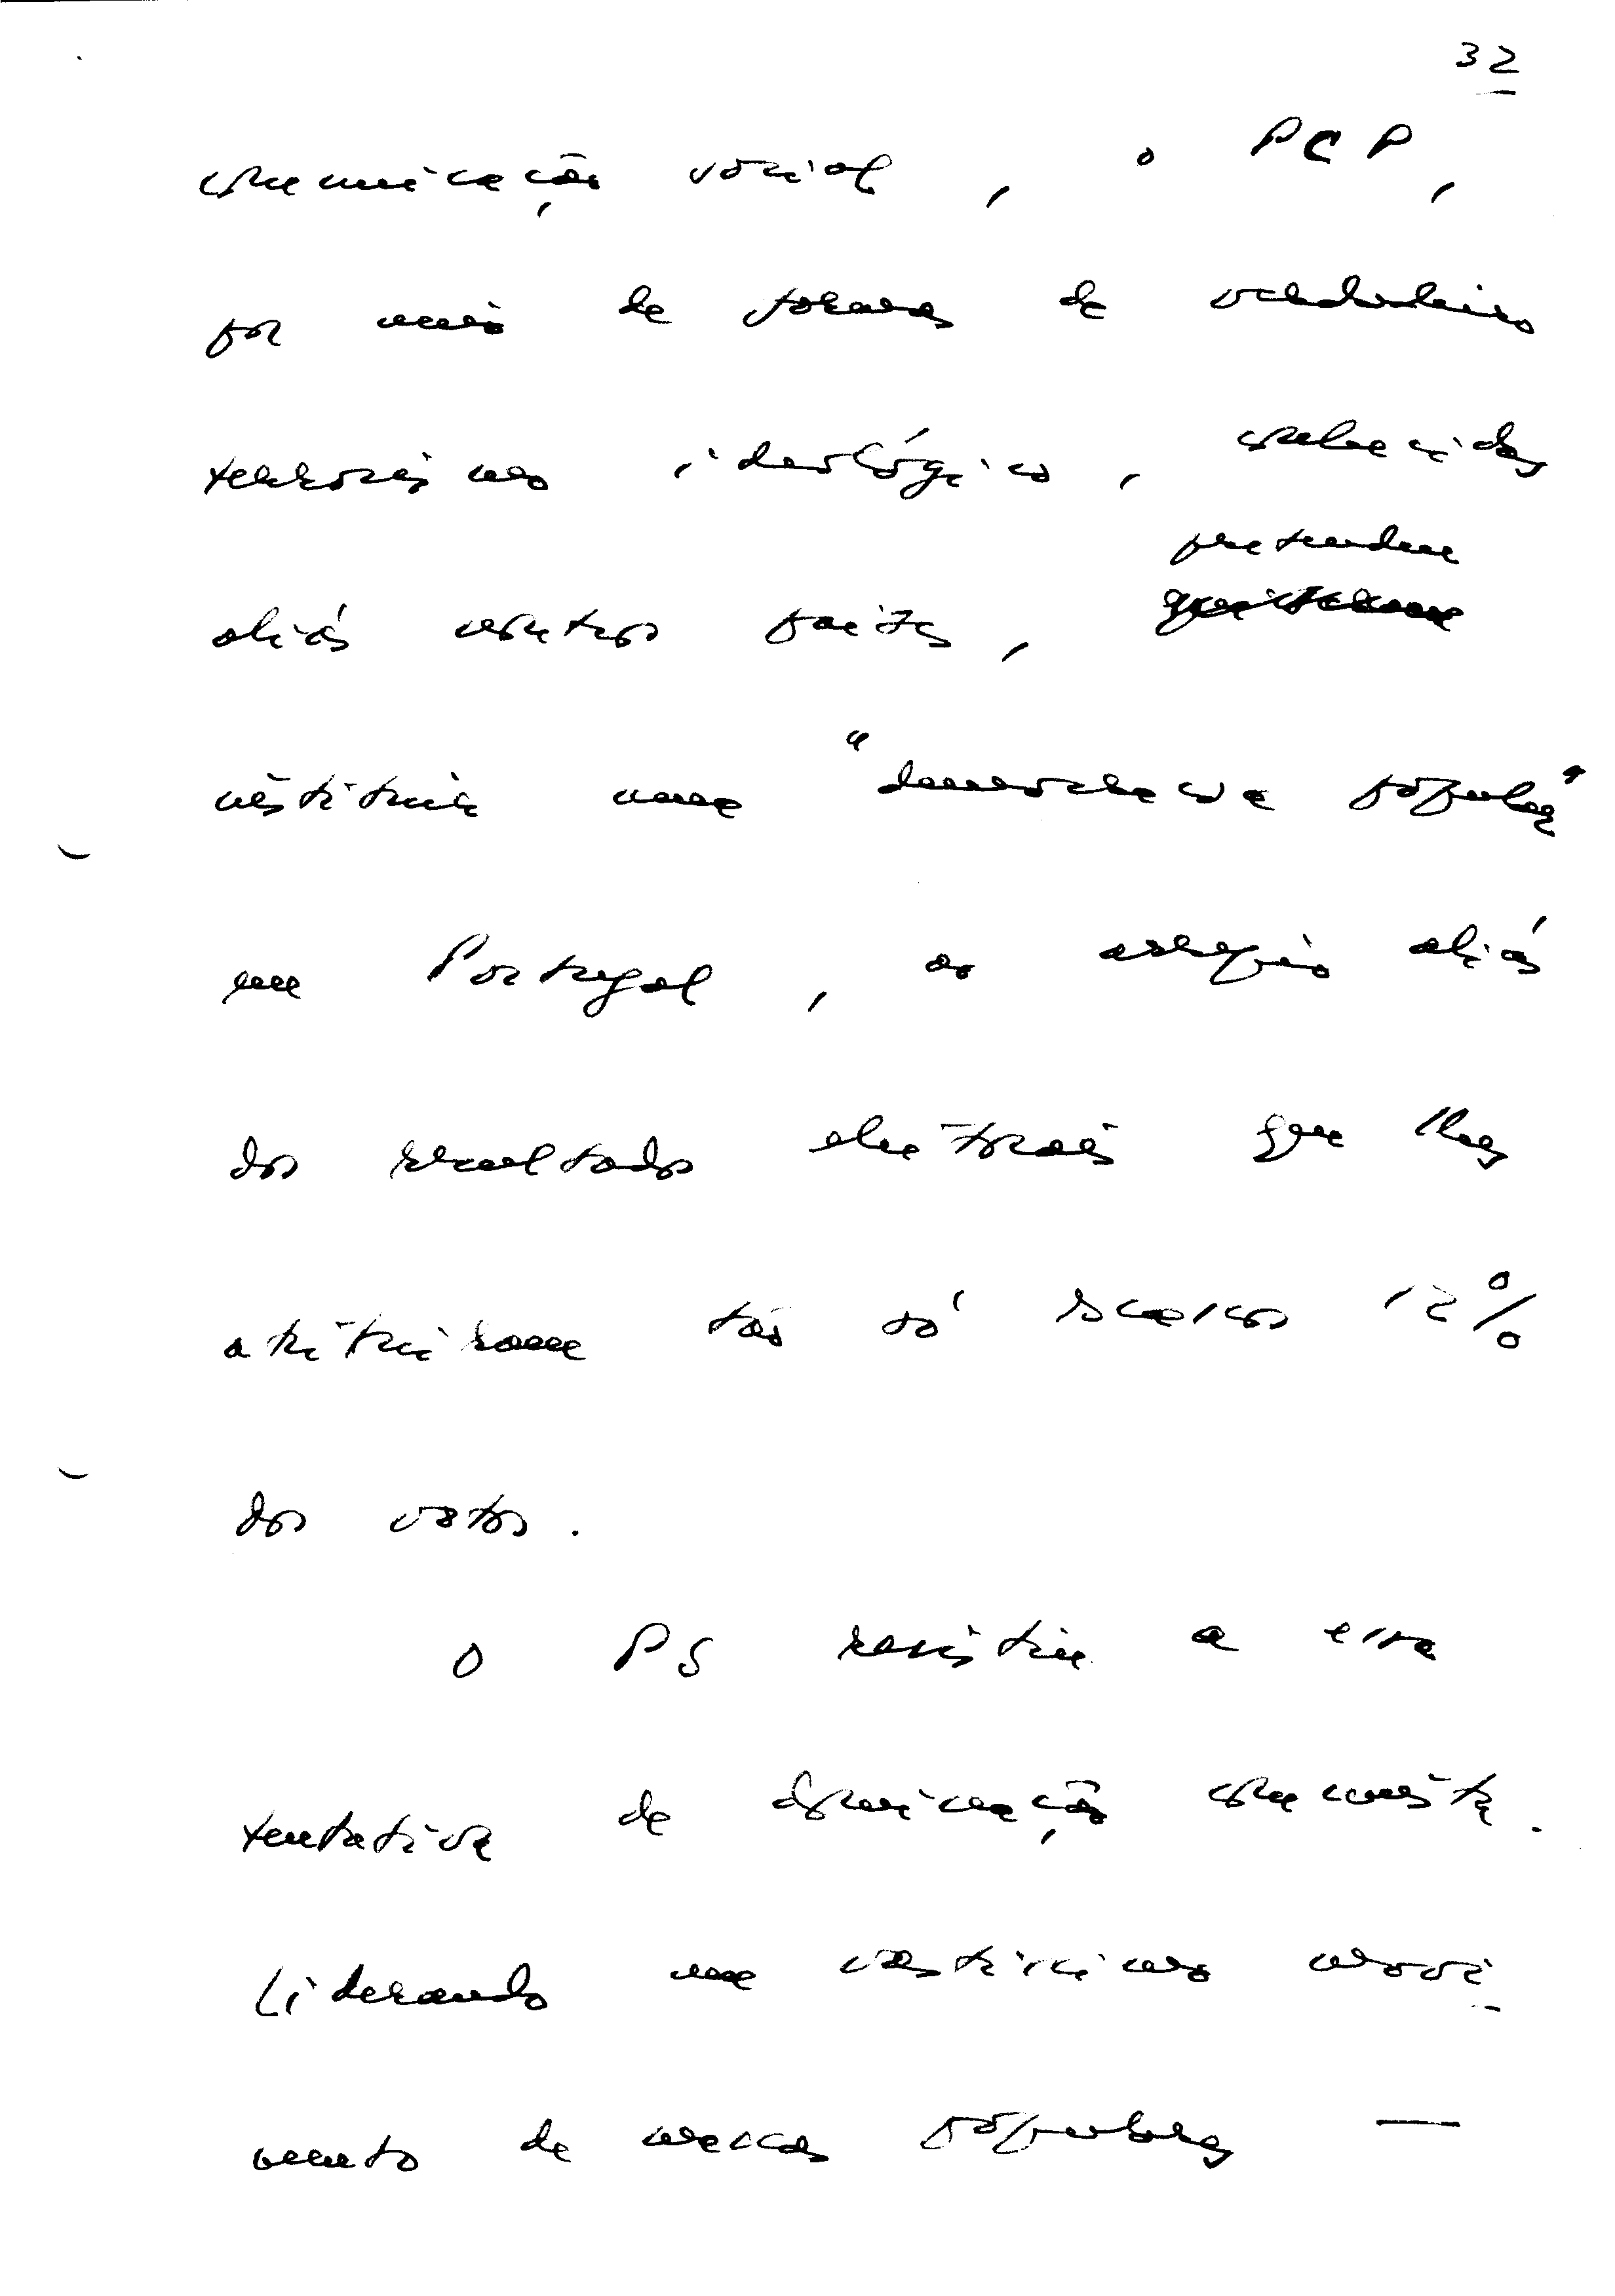 32
comunicação social, o PCP,
por meio de formas de verdadeiro
terrorismo ideológico, conhecidas
aliás noutros países, pretendeu
instituir uma "democracia popular"
em Portugal, ao arrepio aliás
dos resultados eleitorais que lhes
atribuiram tão só escassos 12%
dos votos.
O PS resistiu a essa
tentativa de dominação comunista.
Liderando um vastíssimo movi-
mento de massas populares —